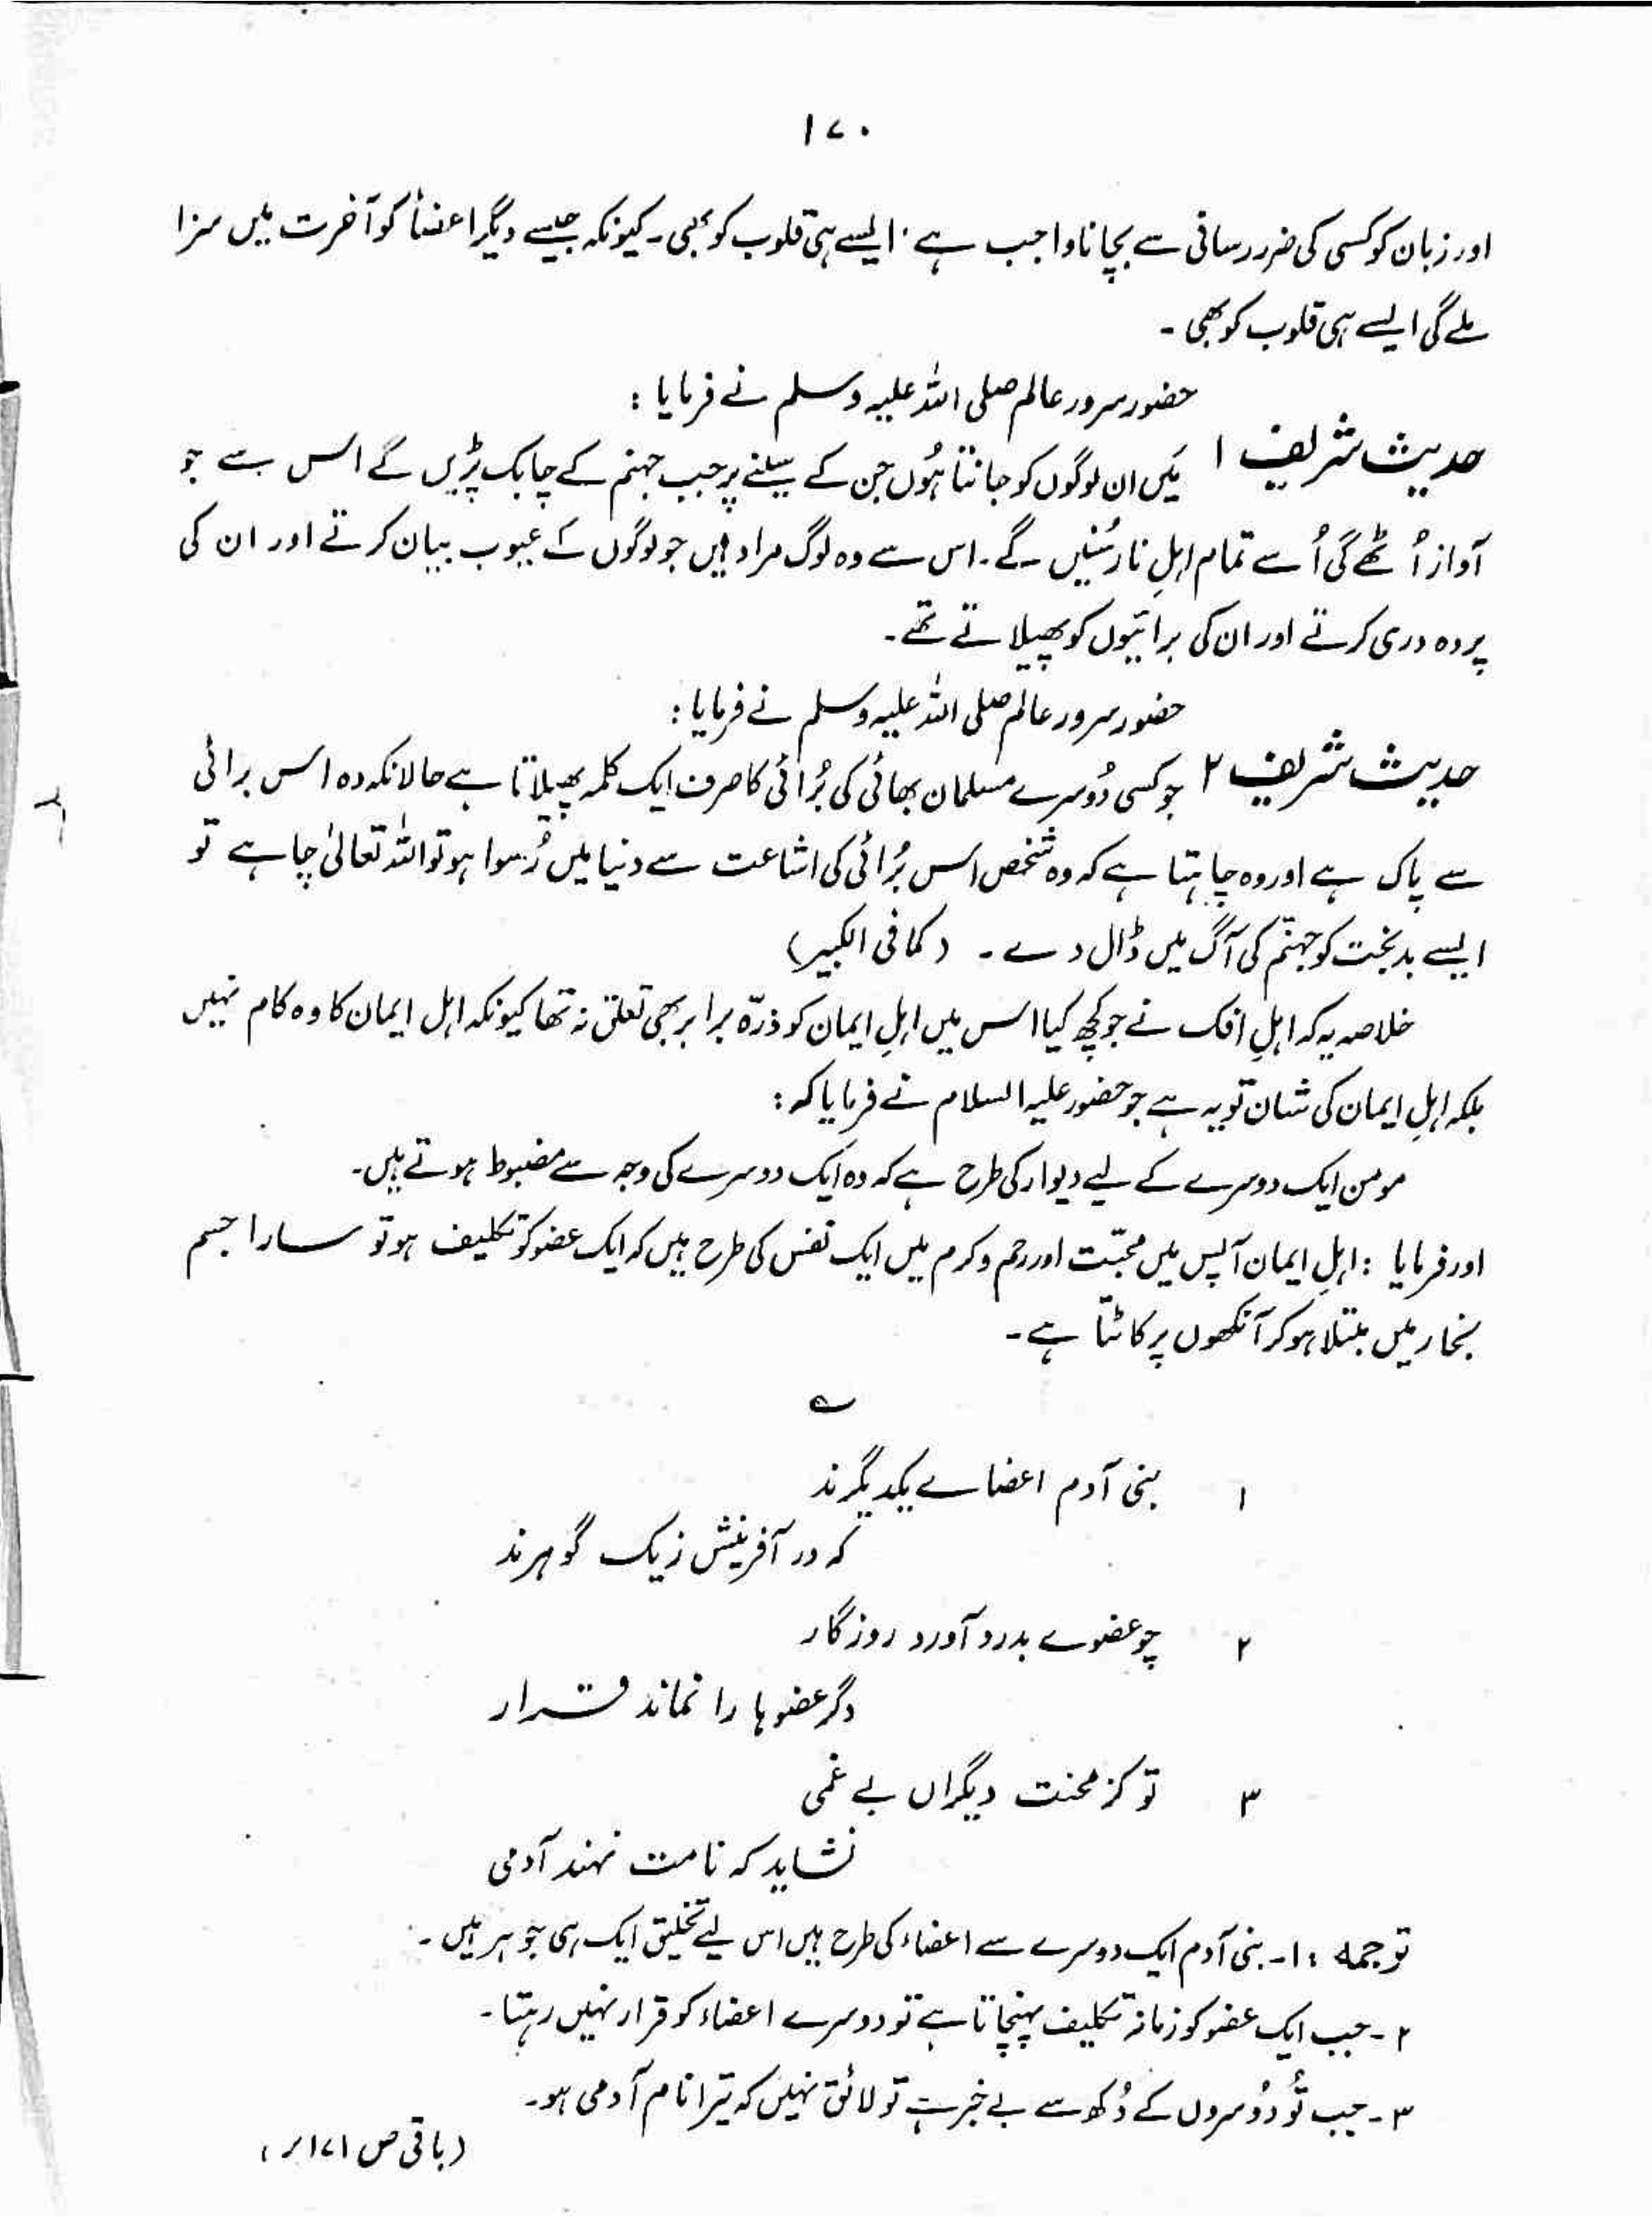 ۱۷۰
اور زبان کو کسی کی ضرر رسانی سے بچانا واجب ہے، ایسے ہی قلوب کو بھی۔ کیونکہ جیسے دیگر اعضأ کو آخرت میں سزا
ملے گی ایسے ہی قلوب کو بھی۔
حضور سرور عالم صلی اللہ علیہ وسلم نے فرمایا :
حدیث شریف ۱ میں ان لوگوں کو جانتا ہُوں جن کے سینے پر جب جہنم کے چابک پڑیں گے اس سے جو
آواز اُٹھے گی اُسے تمام اہلِ نار سُنیں گے۔ اس سے وہ لوگ مراد ہیں جو لوگوں کے عیوب بیان کرتے اور ان کی
پردہ دری کرتے اور ان کی برائیوں کو پھیلاتے تھے۔
حضور سرور عالم صلی اللہ علیہ وسلم نے فرمایا :
حدیث شریف ۲ جو کسی دُوسرے مسلمان بھائی کی بُرائی کا صرف ایک کلمہ پھیلاتا ہے حالانکہ وہ اس برائی
سے پاک ہے اور وہ چاہتا ہے کہ وہ شخص اس بُرائی کی اشاعت سے دنیا میں رُسوا ہو تو اللہ تعالیٰ چاہے تو
ایسے بدبخت کو جہنم کی آگ میں ڈال دے۔ (کما فی الکبیر)
خلاصہ یہ کہ اہلِ افک نے جو کچھ کیا اس میں اہلِ ایمان کو ذرّہ برابر بھی تعلق نہ تھا کیونکہ اہل ایمان کا وہ کام نہیں
بلکہ اہلِ ایمان کی شان تو یہ ہے جو حضور علیہ السلام نے فرمایا کہ :
مومن ایک دوسرے کے لیے دیوار کی طرح ہے کہ وہ ایک دوسرے کی وجہ سے مضبوط ہوتے ہیں۔
اور فرمایا : اہلِ ایمان آپس میں محبّت اور رحم و کرم میں ایک نفس کی طرح ہیں کہ ایک عضو کو تکلیف ہو تو سارا جسم
بخار میں مبتلا ہو کر آنکھوں پر کاٹتا ہے۔
؎
۱ بنی آدم اعضاے یکدیگرند
کہ در آفرینش زیک گوہرند
۲ چو عضوے بدرد آورد روزگار
دگر عضوہا را نماند قرار
۳ تو کز محنت دیگراں بے غمی
نشاید کہ نامت نہند آدمی
ترجمہ : ۱۔ بنی آدم ایک دوسرے سے اعضاء کی طرح ہیں اس لیے تخلیق ایک ہی جوہر ہیں۔
۲۔ جب ایک عضو کو زمانہ تکلیف پہنچاتا ہے تو دوسرے اعضاء کو قرار نہیں رہتا۔
۳۔ جب تُو دُوسروں کے دُکھ سے بے خبر ہے تو لائق نہیں کہ تیرا نام آدمی ہو۔
(باقی ص ۱۷۱ پر)